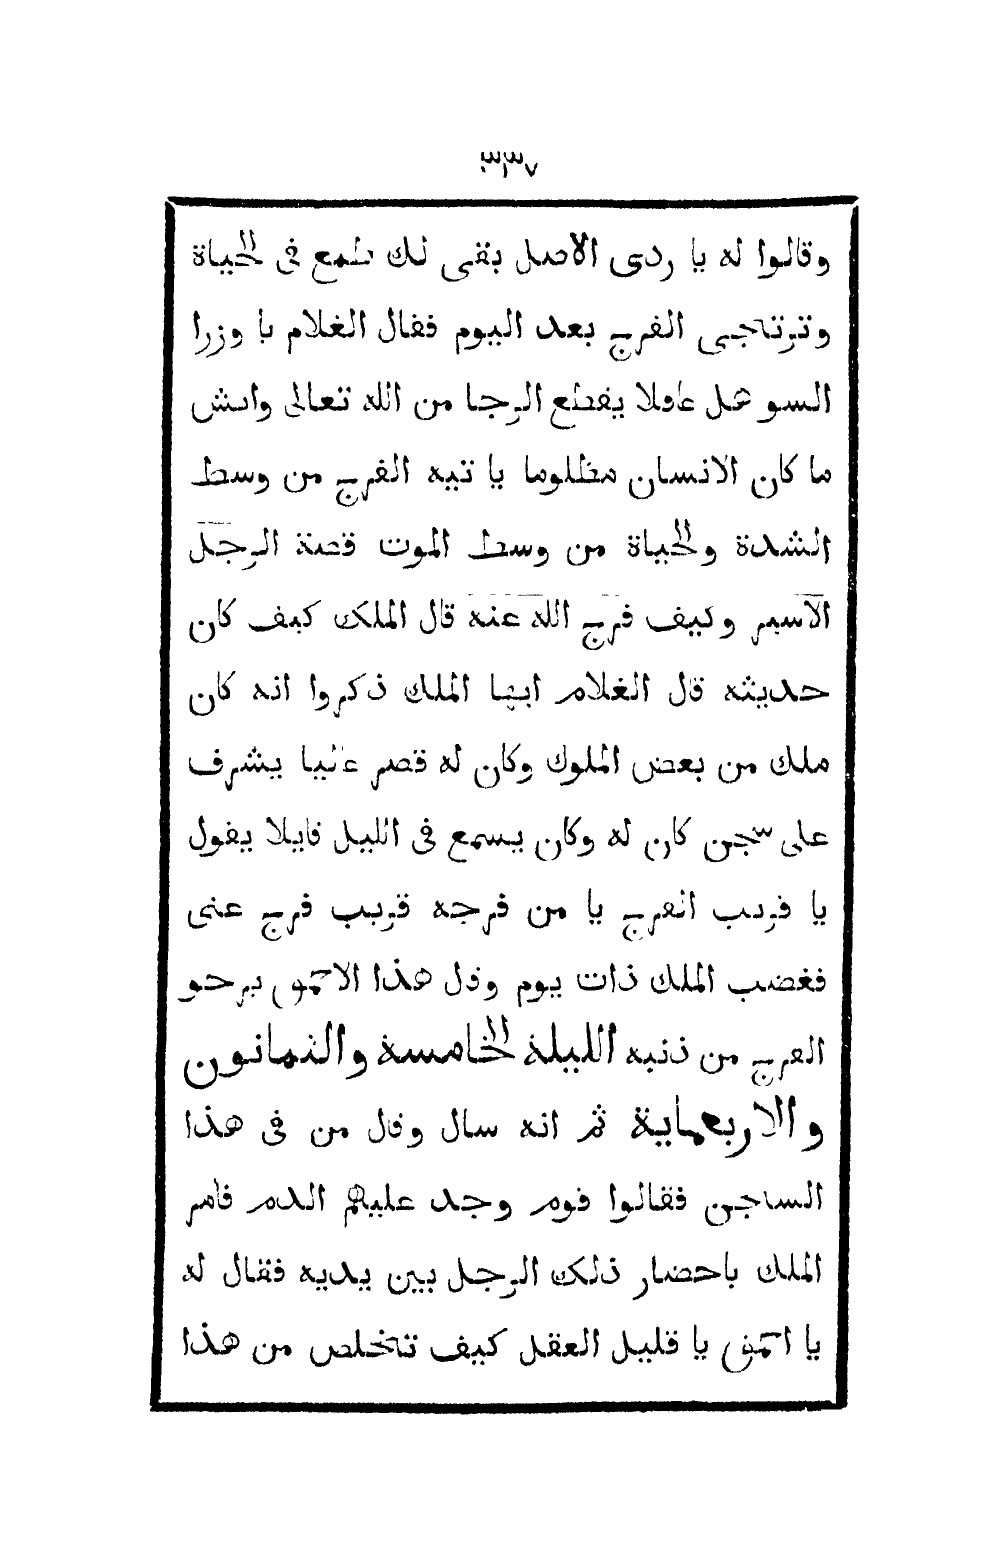 ٣٣٧
وقالوا له يا ردى الاصل بقى لك طمع فى الحياة
وترتاجى الفرج بعد اليوم فقال الغلام يا وزرا
السو هل عاقلا يقطع الرجا من الله تعالى وايش
ما كان الانسان مظلوما يا تيه الفرج من وسط
الشدة والحياة من وسط الموت قصة الرجل
الاسير وكيف فرج الله عنه قال الملك كيف كان
حديثه قال الغلام ايها الملك ذكروا انه كان
ملك من بعض الملوك وكان له قصر عاليا يشرف
على سجن كان له وكان يسمع فى الليل قايلا يقول
يا قريب الفرج يا من فرجه قريب فرج عنى
فغضب الملك ذات يوم وقال هذا الاحمق يرجو
الفرج من ذنبه الليلة الخامسة والثمانون
والاربعماية ثم انه سال وقال من فى هذا
الساجن فقالوا قوم وجد عليهم الدم فامر
الملك باحضار ذلك الرجل بين يديه فقال له
يا احمق يا قليل العقل كيف تتخلص من هذا